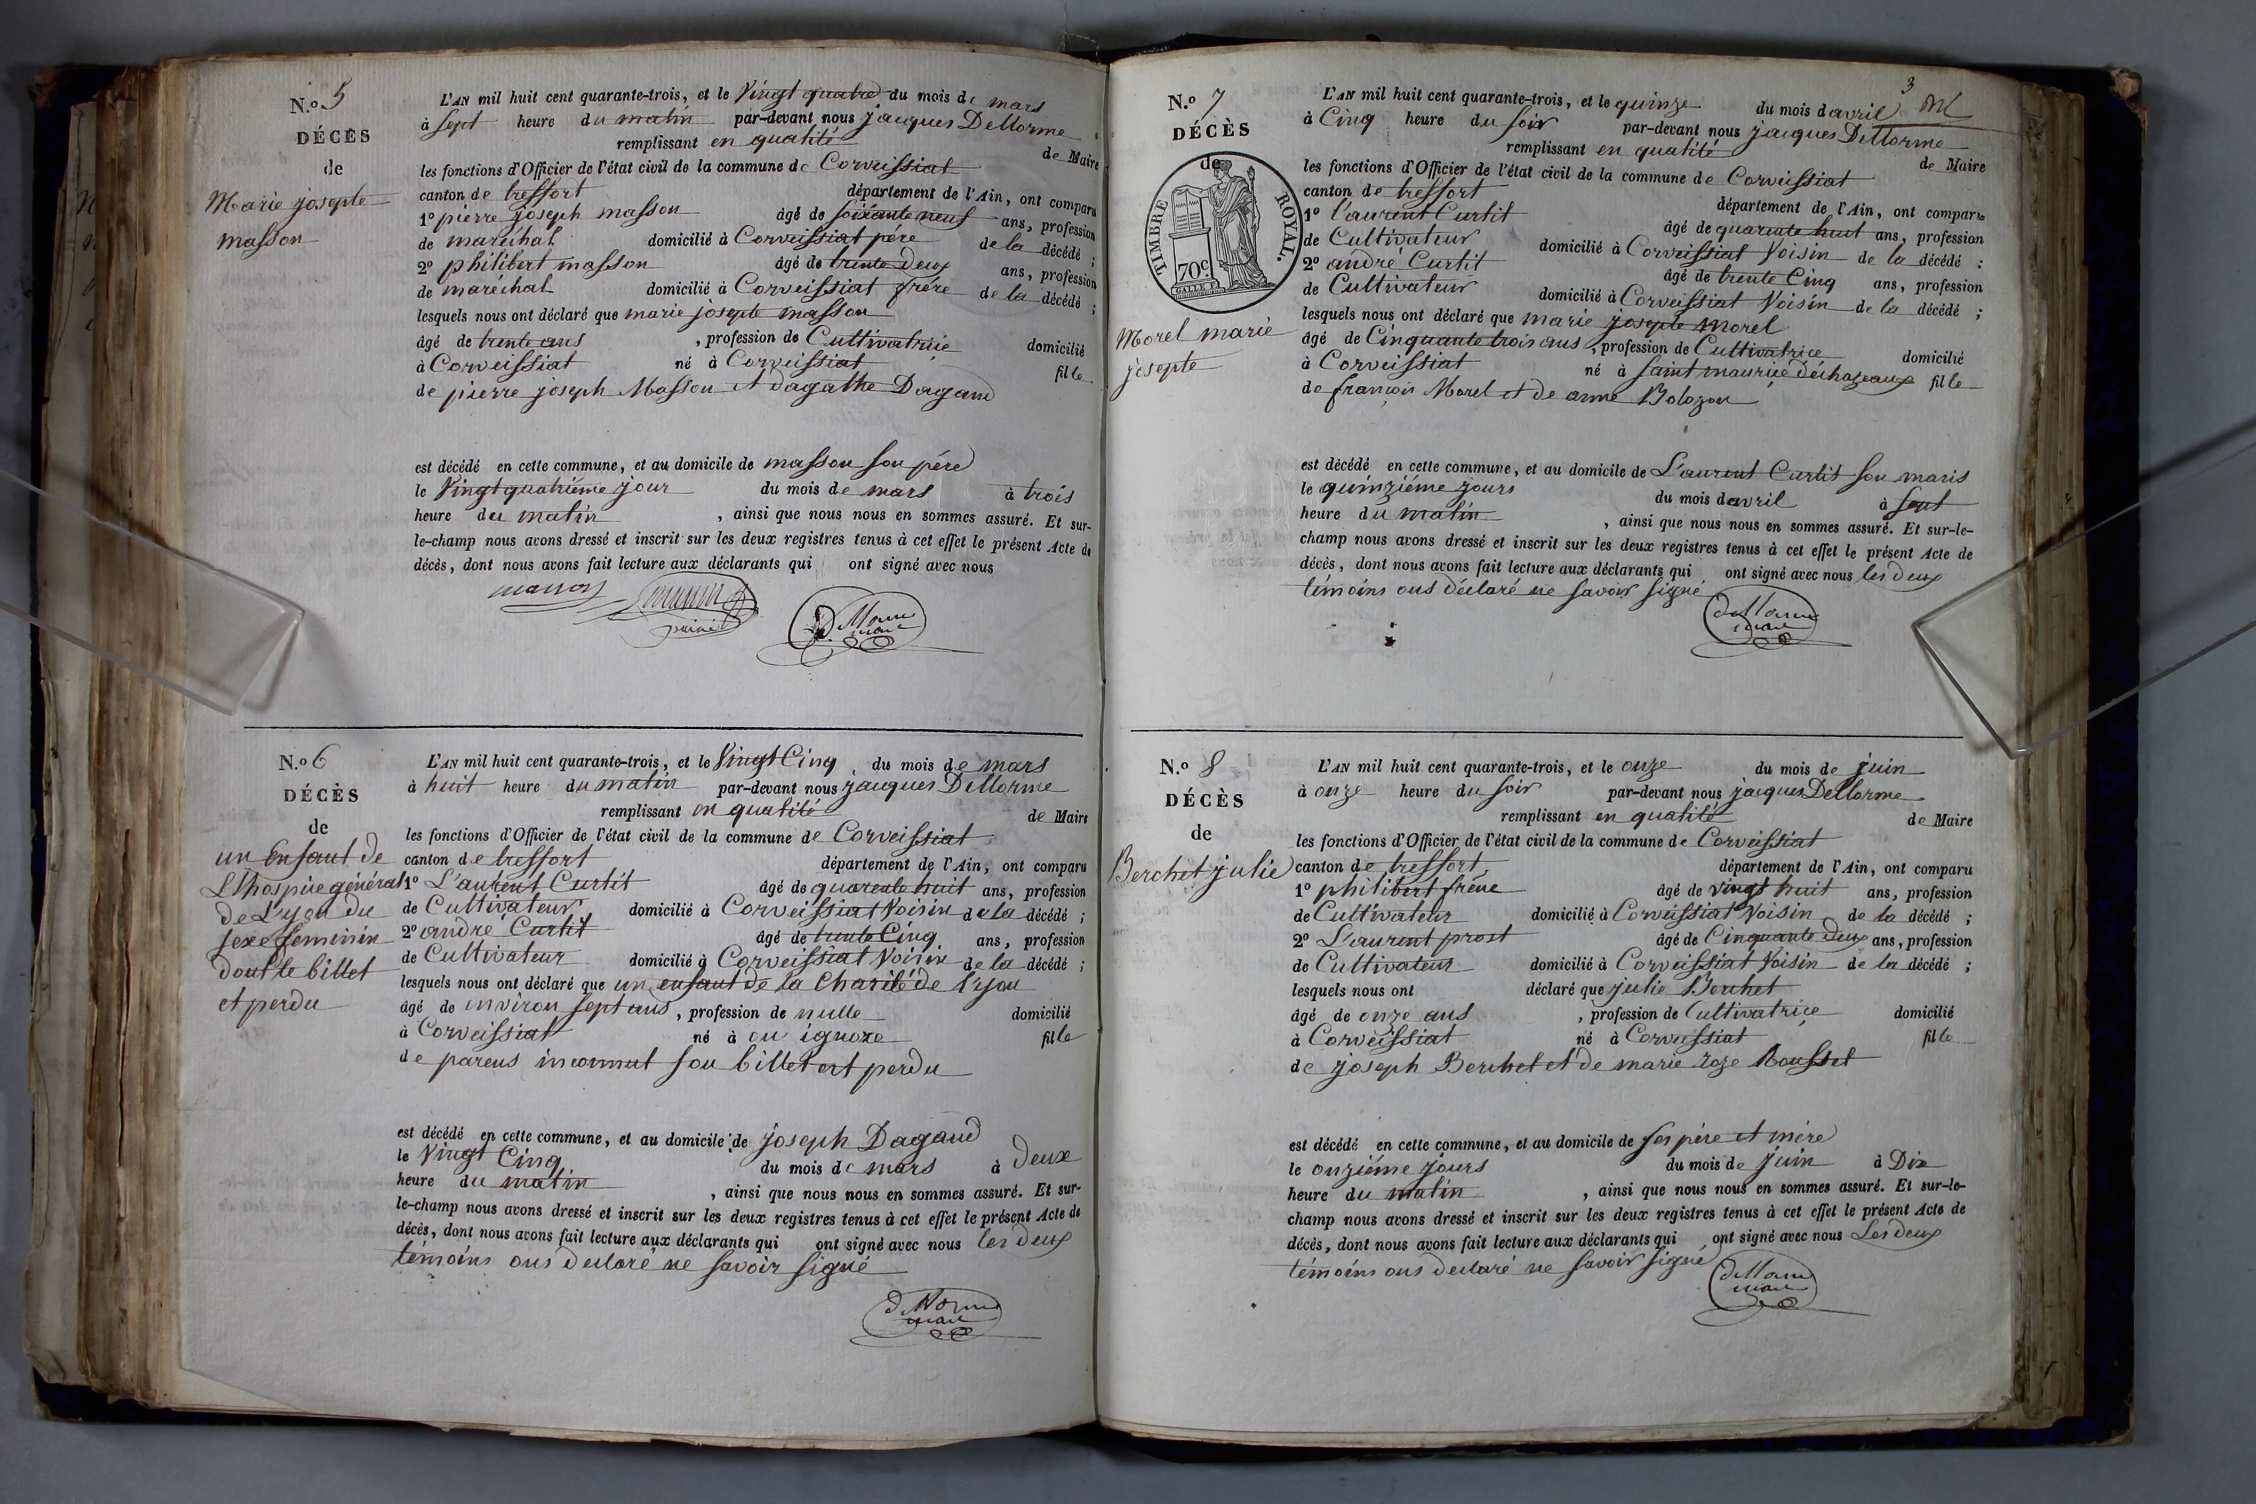 N.o 5
DÉCÈS
de
Marie josepte
masson
L'AN mil huit cent quarante-trois, et le Vingt quatre du mois de mars
à sept heure du matin par-devant nous jacques Dellorme
remplissant en qualité de Maire
les fonctions d'Officier de l'état civil de la commune de Corveissiat
canton de treffort département de l'Ain, ont comparu
1o pierre joseph masson âgé de soixante neuf ans, profession
de maréchal domicilié à Corveissiat père de la décédé ;
2o philibert masson âgé de trente Deux ans, profession
de maréchal domicilié à Corveissiat frére de la décédé ;
lesquels nous ont déclaré que marie josepte masson
âgé de trente ans , profession de Cultivatrice domicilié
à Corveissiat né à Corveissiat fille
de pierre joseph Masson et d'agathe Dagand
est décédé en cette commune, et au domicile de masson son pére
le Vingt quatriéme jour du mois de mars à trois
heure du matin , ainsi que nous nous en sommes assuré. Et sur-
le-champ nous avons dressé et inscrit sur les deux registres tenus à cet effet le présent Acte de
décès, dont nous avons fait lecture aux déclarants qui ont signé avec nous
masson
Dellorme
maire
N.o 6
DÉCÈS
de
un Enfant de
L'hospice général
de L'yon du
sexe feminin
dont le billet
et perdu
L'AN mil huit cent quarante-trois, et le Vingt Cinq du mois de mars
à huit heure du matin par-devant nous jacques Dellorme
remplissant en qualité de Maire
les fonctions d'Officier de l'état civil de la commune de Corveissiat
canton de treffort département de l'Ain, ont comparu
1o L'aurent Curtit âgé de quarente huit ans, profession
de Cultivateur domicilié à Corveissiat Voisin de la décédé ;
2o andré Curtit âgé de trente Cinq ans, profession
de Cultivateur domicilié à Corveissiat Voisin de la décédé ;
lesquels nous ont déclaré que un enfant de la Charité de L'yon
âgé de environ sept ans , profession de nulle domicilié
à Corveissiat né à on ignore fille
de parens inconnut son billet est perdu
est décédé en cette commune, et au domicile de joseph Dagand
le Vingt Cinq du mois de mars à Deux
heure du matin , ainsi que nous nous en sommes assuré. Et sur-
le-champ nous avons dressé et inscrit sur les deux registres tenus à cet effet le présent Acte de
décès, dont nous avons fait lecture aux déclarants qui ont signé avec nous les deux
témoins ons declaré ne savoir signé
Dellorme
maire
3
N.o 7
DÉCÈS
de
TIMBRE ROYAL.
70c.
Morel marie
josepte
L'AN mil huit cent quarante-trois, et le quinze du mois d'avril
à Cinq heure du soir par-devant nous jacques Dellorme
remplissant en qualité de Maire
les fonctions d'Officier de l'état civil de la commune de Corveissiat
canton de treffort département de l'Ain, ont comparu
1o l'aurent Curtit âgé de quarente huit ans, profession
de Cultivateur domicilié à Corveissiat Voisin de la décédé ;
2o andré Curtit âgé de trente Cinq ans, profession
de Cultivateur domicilié à Corveissiat Voisin de la décédé ;
lesquels nous ont déclaré que marie josepte Morel
âgé de Cinquante trois ans , profession de Cultivatrice domicilié
à Corveissiat né à saint maurice d'échazeaux fille
de françois Morel et de anne Bolozon
est décédé en cette commune, et au domicile de L'aurent Curtit son maris
le quinziéme jours du mois d'avril à sept
heure du matin , ainsi que nous nous en sommes assuré. Et sur-le-
champ nous avons dressé et inscrit sur les deux registres tenus à cet effet le présent Acte de
décès, dont nous avons fait lecture aux déclarants qui ont signé avec nous les deux
témoins ons déclaré ne savoir signé
Dellorme
maire
N.o 8
DÉCÈS
de
Berchet julie
L'AN mil huit cent quarante-trois, et le onze du mois de juin
à onze heure du soir par-devant nous jacques Dellorme
remplissant en qualité de Maire
les fonctions d'Officier de l'état civil de la commune de Corveissiat
canton de treffort département de l'Ain, ont comparu
1o philibert frére âgé de vingt huit ans, profession
de Cultivateur domicilié à Corveissiat Voisin de la décédé ;
2o L'aurent prost âgé de Cinquante Deux ans, profession
de Cultivateur domicilié à Corveissiat Voisin de la décédé ;
lesquels nous ont déclaré que julie Berchet
âgé de onze ans , profession de Cultivatrice domicilié
à Corveissiat né à Corveissiat fille
de joseph Berchet et de marie roze Rousset
est décédé en cette commune, et au domicile de ses père et mére
le onziéme jours du mois de juin à Dix
heure du matin , ainsi que nous nous en sommes assuré. Et sur-le-
champ nous avons dressé et inscrit sur les deux registres tenus à cet effet le présent Acte de
décès, dont nous avons fait lecture aux déclarants qui ont signé avec nous Les deux
témoins ons declaré ne savoir signé
Dellorme
maire